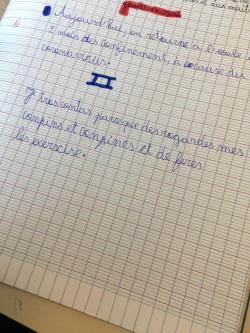 Aujourd'hui, on retourne à l'école
2 mois des confinement, à cause du
coronavirus.
II
Je tres contas parceque des regardes mes
conpins et conpines et de feres
les exercise.